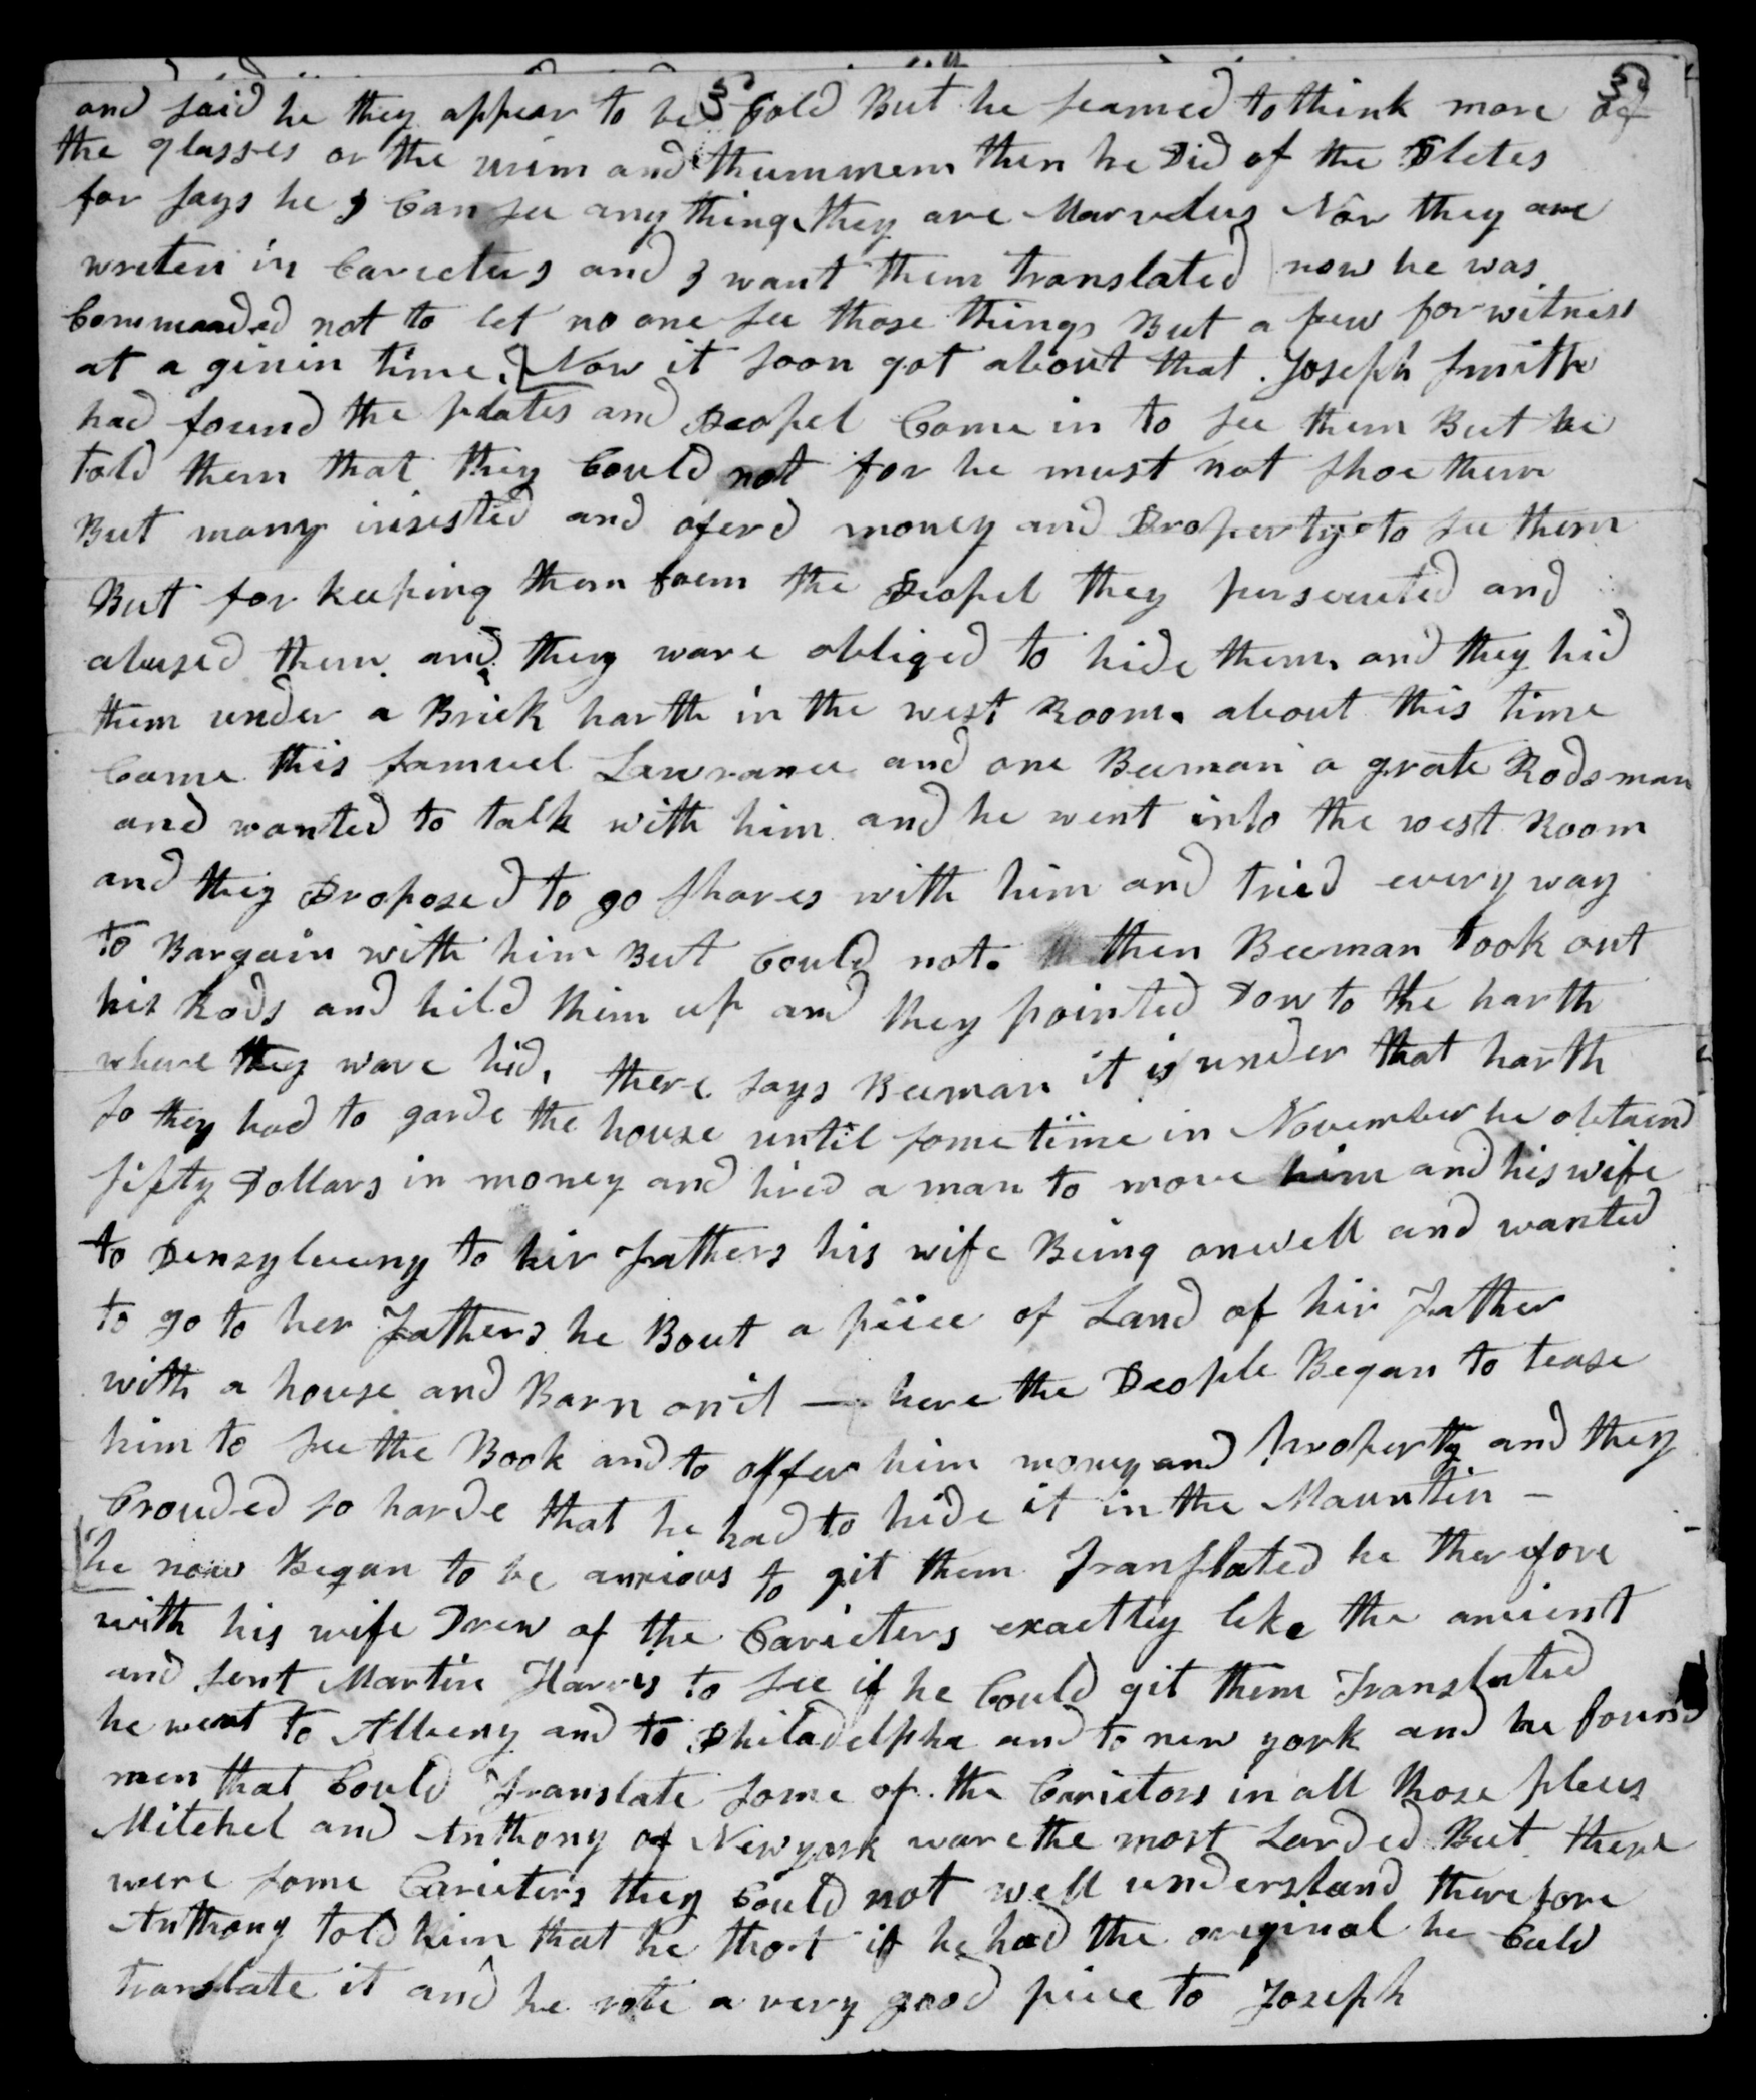 5 5
and said he they appear to be Gold But he seamed to think more of
the glasses or the urim and thummem then he Did of the Pletes
for says he I Can see any thing they are Marvelus Now they are
writen in Carecters and I want them translated now he was
Commanded not to let no one see those things But a few for witness
at a givin time. [Now it soon got about that Joseph Smith
had found the plates and Peopel Come in to see them But he
told them that they Could not for he must not shoe them
But many insisted and oferd money and Property to see them
But for keeping them from the Peopel they persecuted and
abused them and they ware obliged to hide them and they hid
them under a Brick harth in the west Room. about this time
Came this Samuel Lawrance and one Beeman a grate Rodsman
and wanted to talk with him and he went into the west Room
and they Proposed to go shares with him and tried every way
to Bargain with him But Could not. then Beeman took out
his Rods and hild them up and they pointed Dow to the harth
where they ware hid, there says Beeman it is under that harth
so they had to garde the house until some time in November he obtaind
fifty Dollars in money and hired a man to move him and his wife
to Pensylveeny to hir Fathers his wife Being onwell and wanted
to go to her Fathers he Bout a piece of Land of hir Father
with a house and Barn on it — here the People Began to tease
him to see the Book and to offer him money and property and they
Crouded so harde that he had to hide it in the Mountin —
[he now Began to be anxious to git them Translated he therefore
with his wife Drew of the Caricters exactley like the ancient
and sent Martin Harris to see if he Could git them Translated
he went to Albeny and to Philadelpha and to new york and he found
men that Could Translate some of the Carictors in all those places
Mitchel and Anthony of New york ware the most Larded But there
were some Caricters they Could not well understand therefore
Anthony told him that he thot if he had the original he Culd
translate it and he rote a very good piece to Joseph